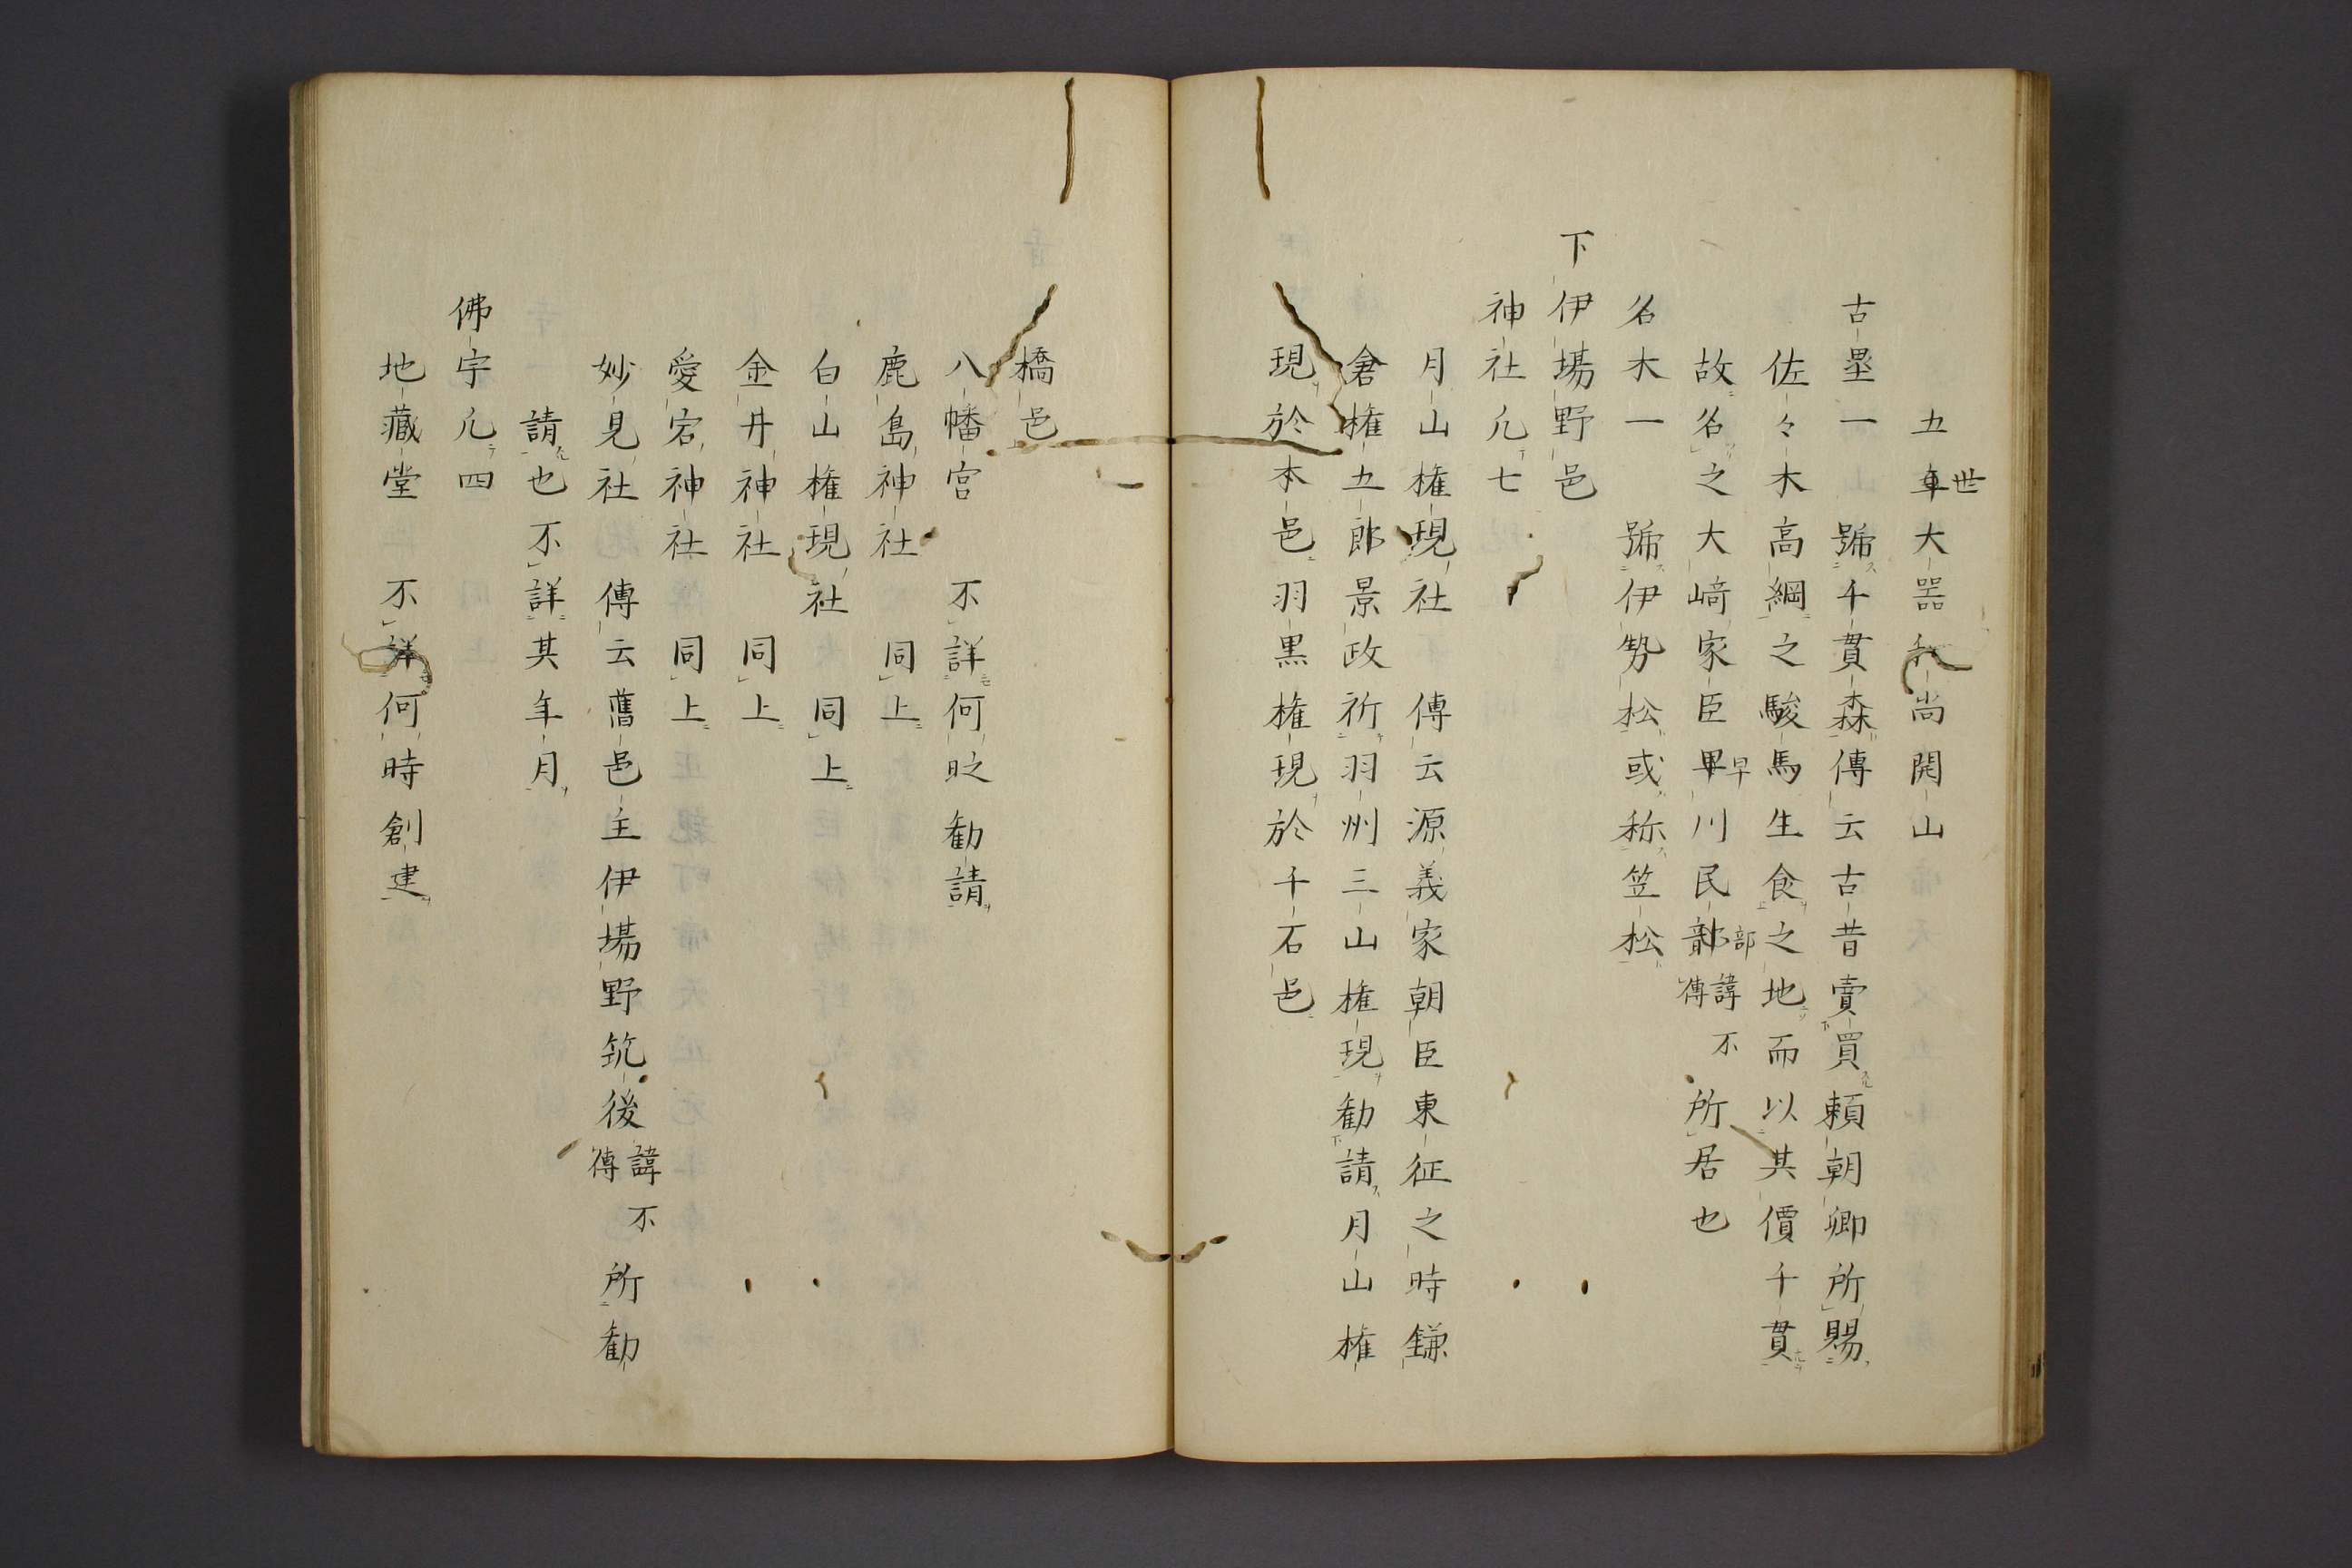 五世大器和尚開山
古壘一　號千貫森傳云古昔賣買頼朝卿所賜
佐々木高綱之駿馬生食之地而以其價千貫
故名之大﨑家臣早川民部諱不傳所居也
名木一　號伊勢松或称笠松
下伊塲野邑
神社凢七
月山権現社　傳云源義家朝臣東征之時鎌
倉権五郎景政祈羽州三山権現勧請月山権
現於本邑羽黒権現於千石邑
橋邑
八幡宮　不詳何时勧請
鹿島神社　同上
白山権現社　同上
金井神社　同上
愛宕神社　同上
妙見社　傳云舊邑主伊塲野筑後諱不傳所勧
請也不詳其年月
佛宇凢四
地藏堂　不詳何時創建